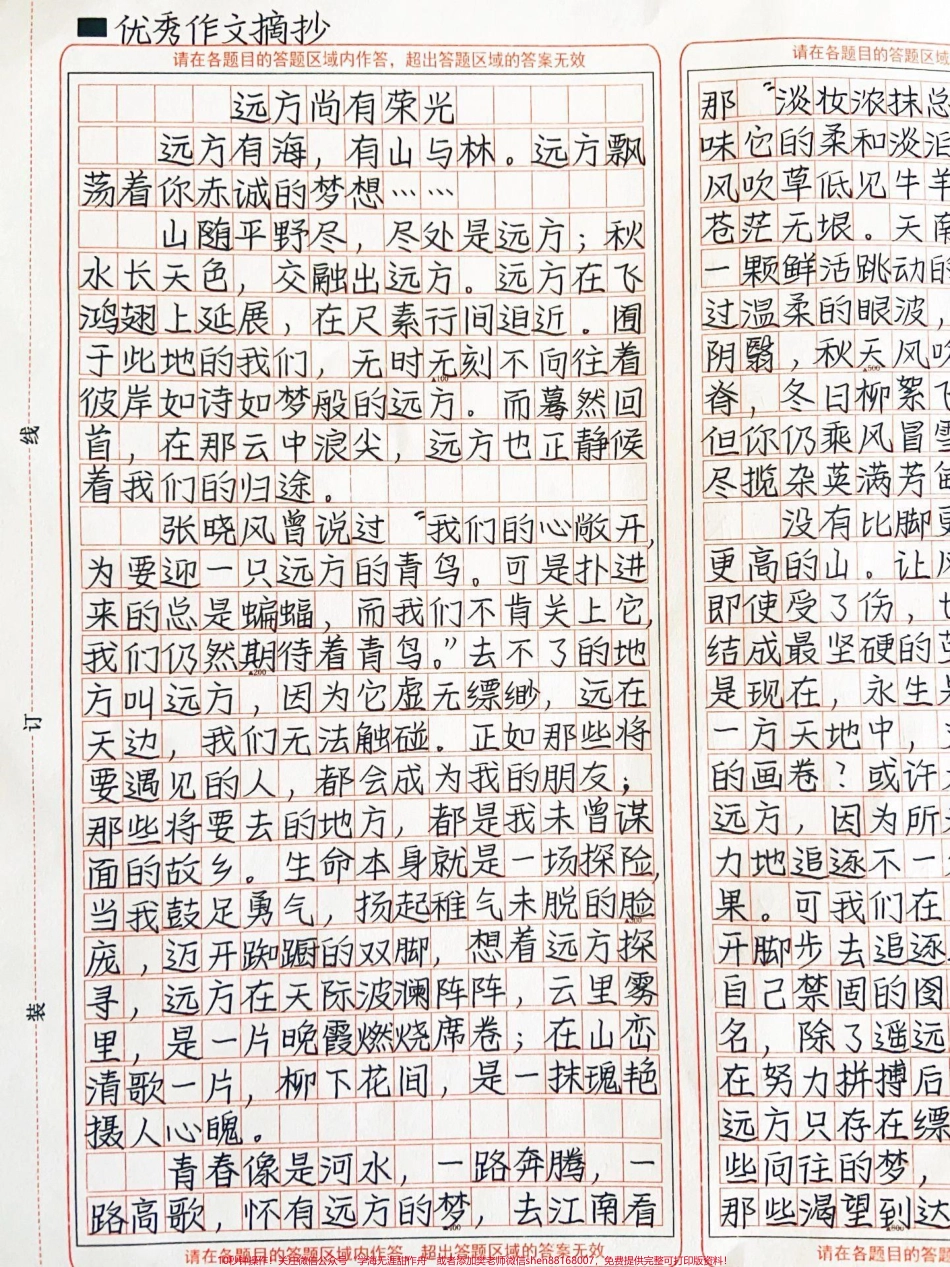 ■优秀作文摘抄
请在各题目的答题区域内作答，超出答题区域的答案无效
远方尚有荣光
远方有海，有山与林。远方飘
荡着你赤诚的梦想……
山随平野尽，尽处是远方；秋
水长天色，交融出远方。远方在飞
鸿翅上延展，在尺素行间迫近。囿
于此地的我们，无时无刻不向往着
▲100
彼岸如诗如梦般的远方。而蓦然回
首，在那云中浪尖，远方也正静候
着我们的归途。
张晓风曾说过“我们的心敞开，
为要迎一只远方的青鸟。可是扑进
来的总是蝙蝠，而我们不肯关上它，
我们仍然期待着青鸟。”去不了的地
▲200
方叫远方，因为它虚无缥缈，远在
天边，我们无法触碰。正如那些将
要遇见的人，都会成为我的朋友；
那些将要去的地方，都是我未曾谋
面的故乡。生命本身就是一场探险，
当我鼓足勇气，扬起稚气未脱的脸
▲300
庞，迈开踟蹰的双脚，想着远方探
寻，远方在天际波澜阵阵，云里雾
里，是一片晚霞燃烧席卷；在山峦
清歌一片，柳下花间，是一抹瑰艳
摄人心魄。
青春像是河水，一路奔腾，一
路高歌，怀有远方的梦，去江南看
▲400
请在各题目的答题区域内作答，超出答题区域的答案无效
请在各题目的答题区域
那“淡妆浓抹总
味它的柔和淡泊
风吹草低见牛羊
苍茫无垠。天南
一颗鲜活跳动的
过温柔的眼波，
阴翳，秋天风吹
▲500
脊，冬日柳絮飞
但你仍乘风冒雪
尽揽杂英满芳甸
没有比脚更
更高的山。让风
即使受了伤，
结成最坚硬的
是现在，永生
一方天地中，
的画卷？或许
远方，因为所
力地追逐不一
果。可我们在
开脚步去追逐
自己禁固的图
名，除了遥远
在努力拼搏后
远方只存在缥
些向往的梦，
那些渴望到达
▲800
请在各题目的答题
线
订
装